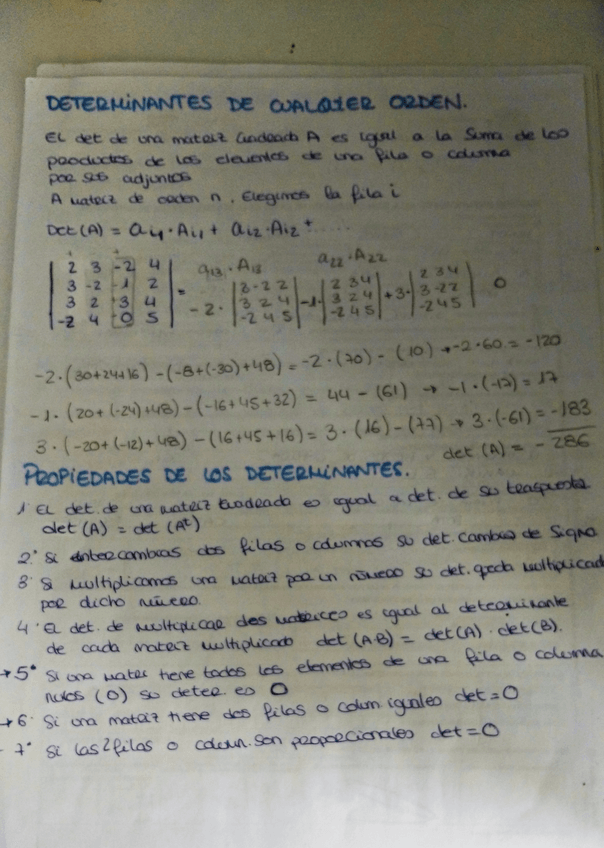 DETERMINANTES DE CUALQUIER ORDEN.
El det de una matriz cuadrada A es igual a la suma de los
productos de los elementos de una fila o columna
por sus adjuntos
A matriz de orden n, Elegimos la fila i
Det(A) = ai1·Ai1 + ai2·Ai2 + .....
a13·A13 a22·A22
| 2 3 -2 4 | = -2· | 3 -2 2 | -1· | 2 3 4 | +3· | 2 3 4 | 0
| 3 -2 -1 2 | | 3 2 4 | | 3 2 4 | | 3 -2 2 |
| 3 2 3 4 | | -2 4 5 | | -2 4 5 | | -2 4 5 |
| -2 4 0 5 |
-2·(30+24+16) - (-8+(-30)+48) = -2·(70) - (10) → -2·60 = -120
-1·(20+(-24)+48) - (-16+45+32) = 44 - (61) → -1·(-17) = 17
3·(-20+(-12)+48) - (16+45+16) = 3·(16) - (77) → 3·(-61) = -183
det (A) = -286
PROPIEDADES DE LOS DETERMINANTES.
1· El det. de una matriz cuadrada es igual a det. de su traspuesta
det (A) = det (Aᵗ)
2º Si intercambias dos filas o columnas su det. cambia de signo
3· Si multiplicamos una matriz por un número su det. queda multiplicad
por dicho número.
4· El det. de multiplicar dos matrices es igual al determinante
de cada matriz multiplicado det (A·B) = det(A)·det(B).
→ 5º Si una matriz tiene todos los elementos de una fila o columna
nulos (0) su deter es 0
→ 6· Si una matriz tiene dos filas o colum iguales det = 0
- 7º Si las 2 filas o colum. son proporcionales det = 0